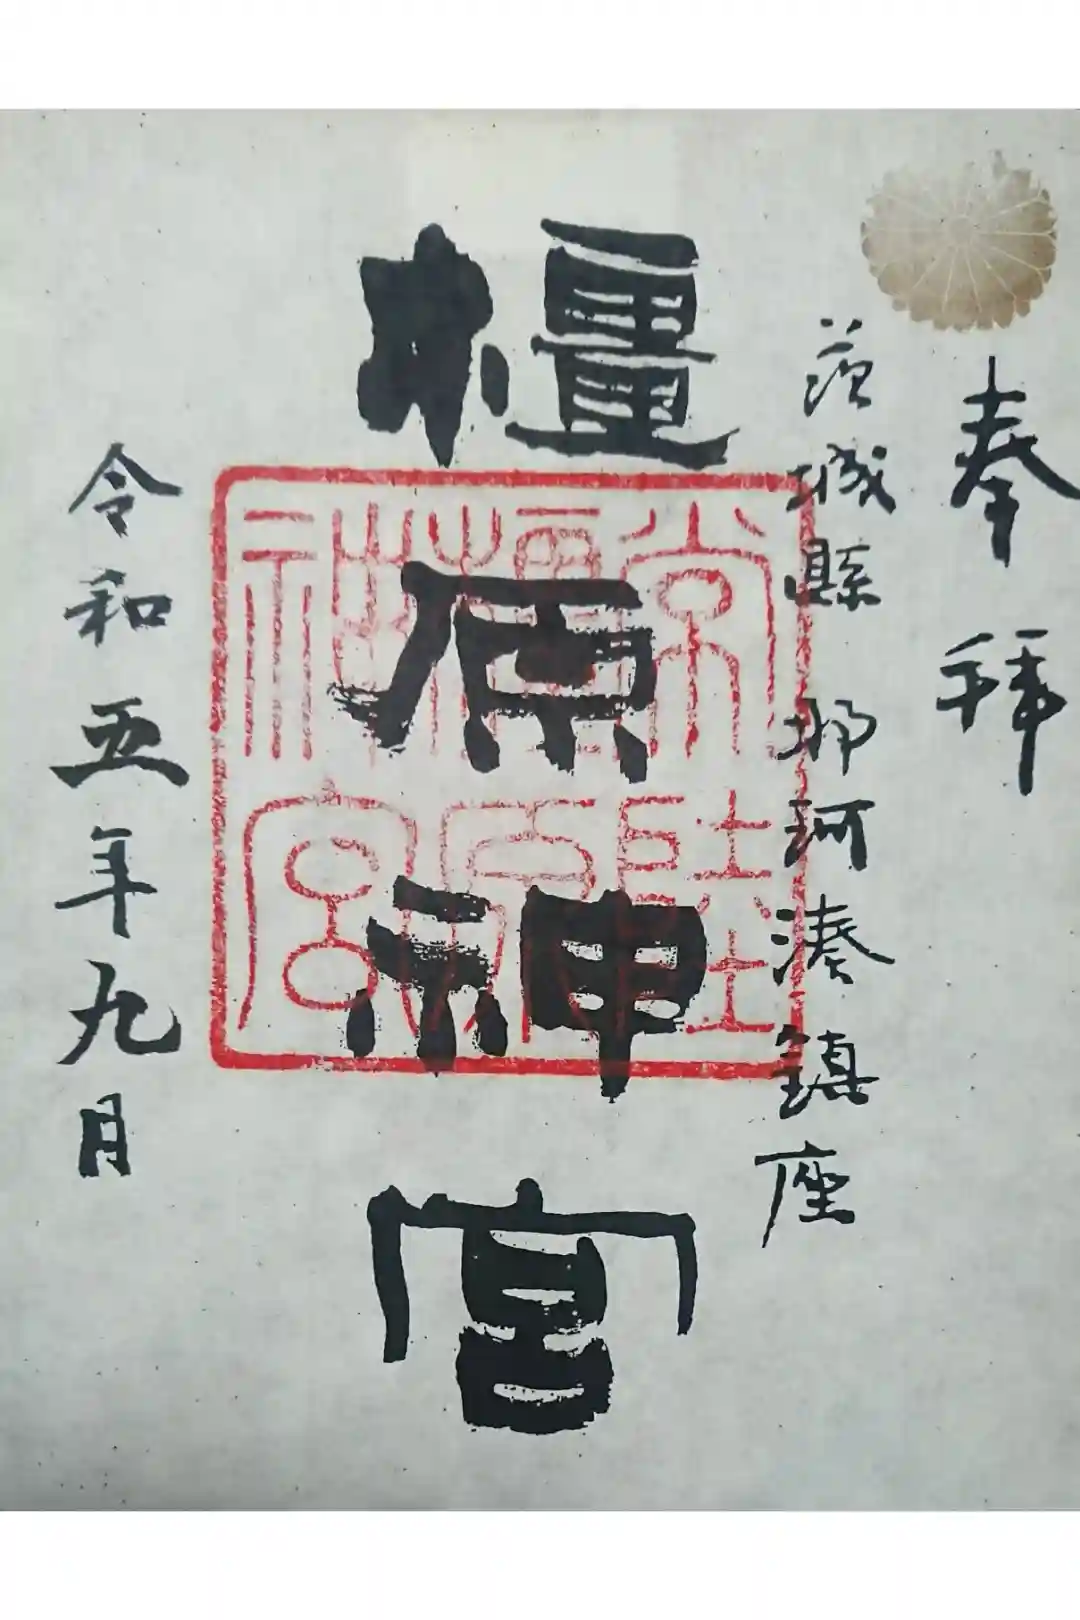 奉拜
茨城縣 那珂湊鎮座
橿原神宮
常陸
橿原
神宮
令和五年九月